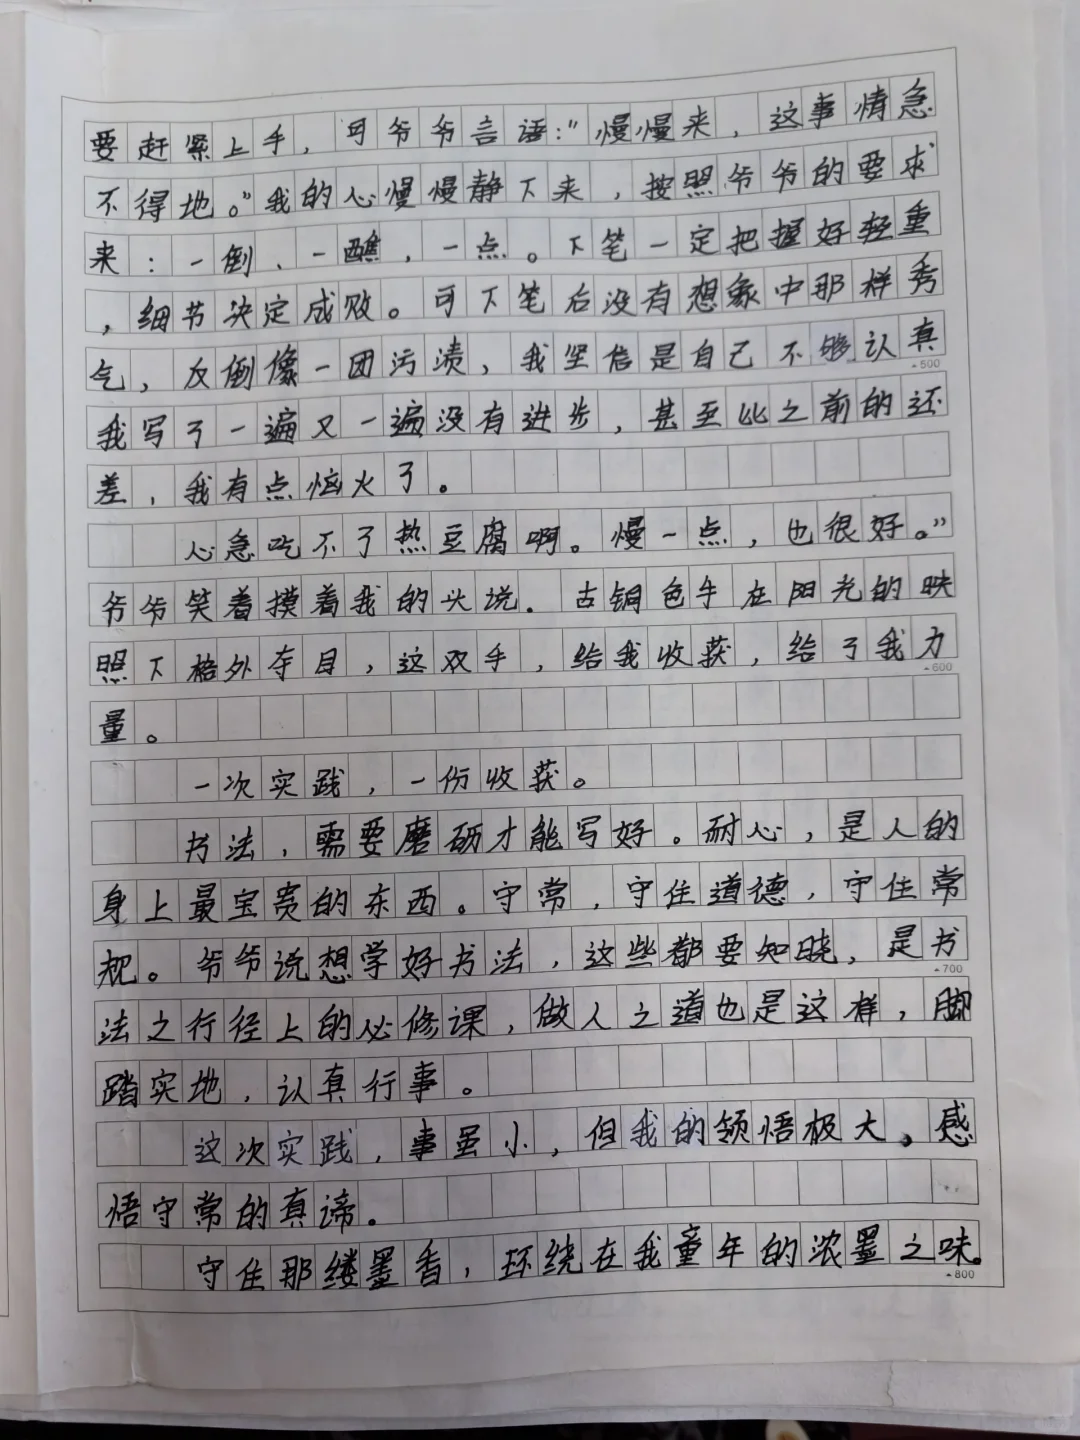 要赶紧上手，可爷爷言语："慢慢来，这事情急
不得地。"我的心慢慢静下来，按照爷爷的要求
来：一倒、一蘸，一点。下笔一定把握好轻重
，细节决定成败。可下笔后没有想象中那样秀
气，反倒像一团污渍，我坚信是自己不够认真
500
我写了一遍又一遍没有进步，甚至比之前的还
差，我有点恼火了。
心急吃不了热豆腐啊。慢一点，也很好。"
爷爷笑着摸着我的头说．古铜色手在阳光的映
照下格外夺目，这双手，给我收获，给了我力
600
量。
一次实践，一份收获。
书法，需要磨砺才能写好。耐心，是人的
身上最宝贵的东西。守常，守住道德，守住常
规。爷爷说想学好书法，这些都要知晓，是书
700
法之行径上的必修课，做人之道也是这样，脚
踏实地，认真行事。
这次实践，事虽小，但我的领悟极大。感
悟守常的真谛。
守住那缕墨香，环绕在我童年的浓墨之味。
800